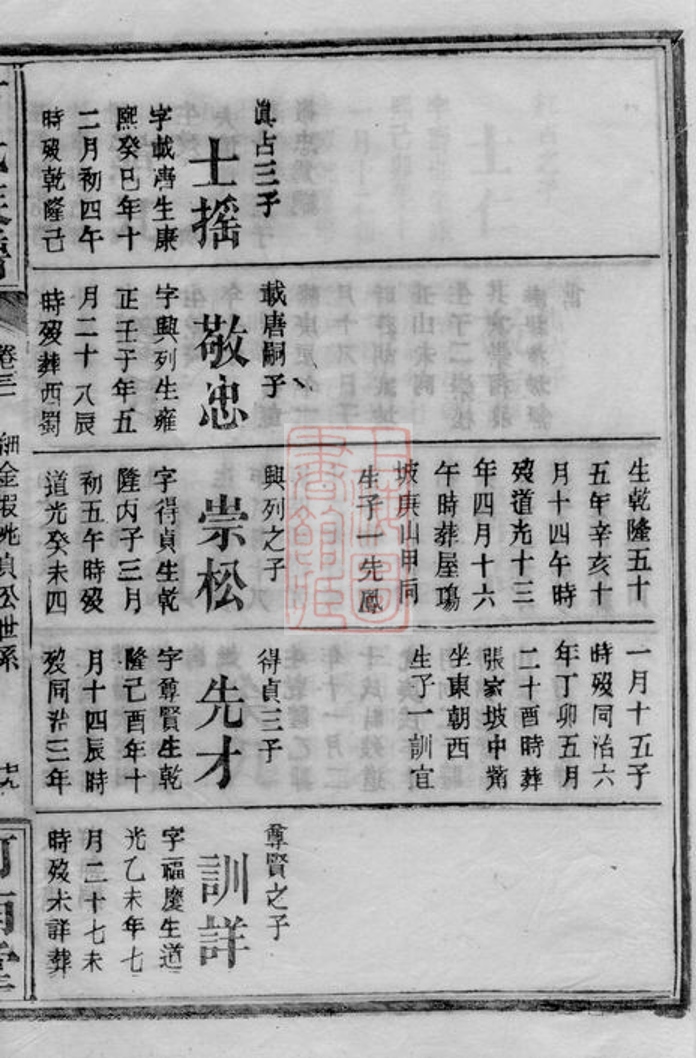 眞占三子
士搖
字載唐生康
熙癸巳年十
二月初四午
時歿乾隆己
載唐嗣子
敬忠
字興列生雍
正壬子年五
月二十八辰
時歿葬西蜀
生乾隆五十
五年辛亥十
月十四午時
歿道光十三
年四月十六
午時葬屋塲
坡庚山甲向
生子一先鳳
興列之子
崇松
字得貞生乾
隆丙子三月
初五午時歿
道光癸未四
一月十五子
時歿同治六
年丁卯五月
二十酉時葬
張家坡中嶆
坐東朝西
生子一訓宜
得貞三子
先才
字尊賢生乾
隆己酉年十
月十四辰時
歿同治三年
尊賢之子
訓詳
字福慶生道
光乙未年七
月二十七未
時歿未詳葬
卷三
世系
十九